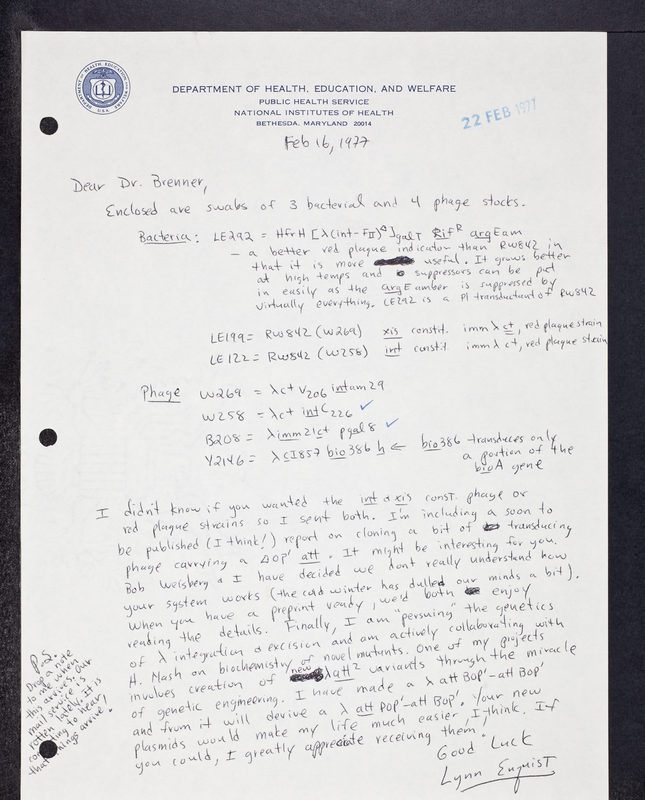 DEPARTMENT OF HEALTH, EDUCATION, AND WELFARE
PUBLIC HEALTH SERVICE
NATIONAL INSTITUTES OF HEALTH
BETHESDA, MARYLAND 20014
22 FEB 1977
Feb 16, 1977
Dear Dr. Brenner,
Enclosed are swabs of 3 bacterial and 4 phage stocks.
Bacteria: LE292 = HfrH [λ(int-FII)Δ]galT RifR argEam
— a better red plaque indicator than RW842 in
that it is more useful. It grows better
at high temps and suppressors can be put
in easily as the argE amber is suppressed by
virtually everything. LE292 is a P1 transductant of RW842
LE199 = RW842 (W269) xis constit. imm λ ct, red plaque strain
LE122 = RW842 (W258) int constit. imm λ ct, red plaque strain
Phage W269 = λc+ v206 intam29
W258 = λc+ intC226 ✓
B208 = λimm21c+ pgal8 ✓
Y2146 = λcI857 bio386 h ← bio386 transduces only
a portion of the
bioA gene
I didn't know if you wanted the int & xis const. phage or
red plaque strains so I sent both. I'm including a soon to
be published (I think!) report on cloning a bit of transducing
phage carrying a ΔOP' att. It might be interesting for you.
Bob Weisberg & I have decided we dont really understand how
your system works (the cold winter has dulled our minds a bit).
When you have a preprint ready, we'd both enjoy
reading the details. Finally, I am "persuing" the genetics
of λ integration & excision and am actively collaborating with
H. Nash on biochemistry of novel mutants. One of my projects
involves creation of new λatt2 variants through the miracle
of genetic engineering. I have made a λ att BOP'-att BOP'
and from it will derive a λ att POP'-att BOP'. Your new
plasmids would make my life much easier, I think. If
you could, I greatly appreciate receiving them.
Good Luck
Lynn Enquist
P.S.
Drop a note
to me when
this arrives. Our
mail service is
rotten lately. It is
comforting to hear
that things arrive!